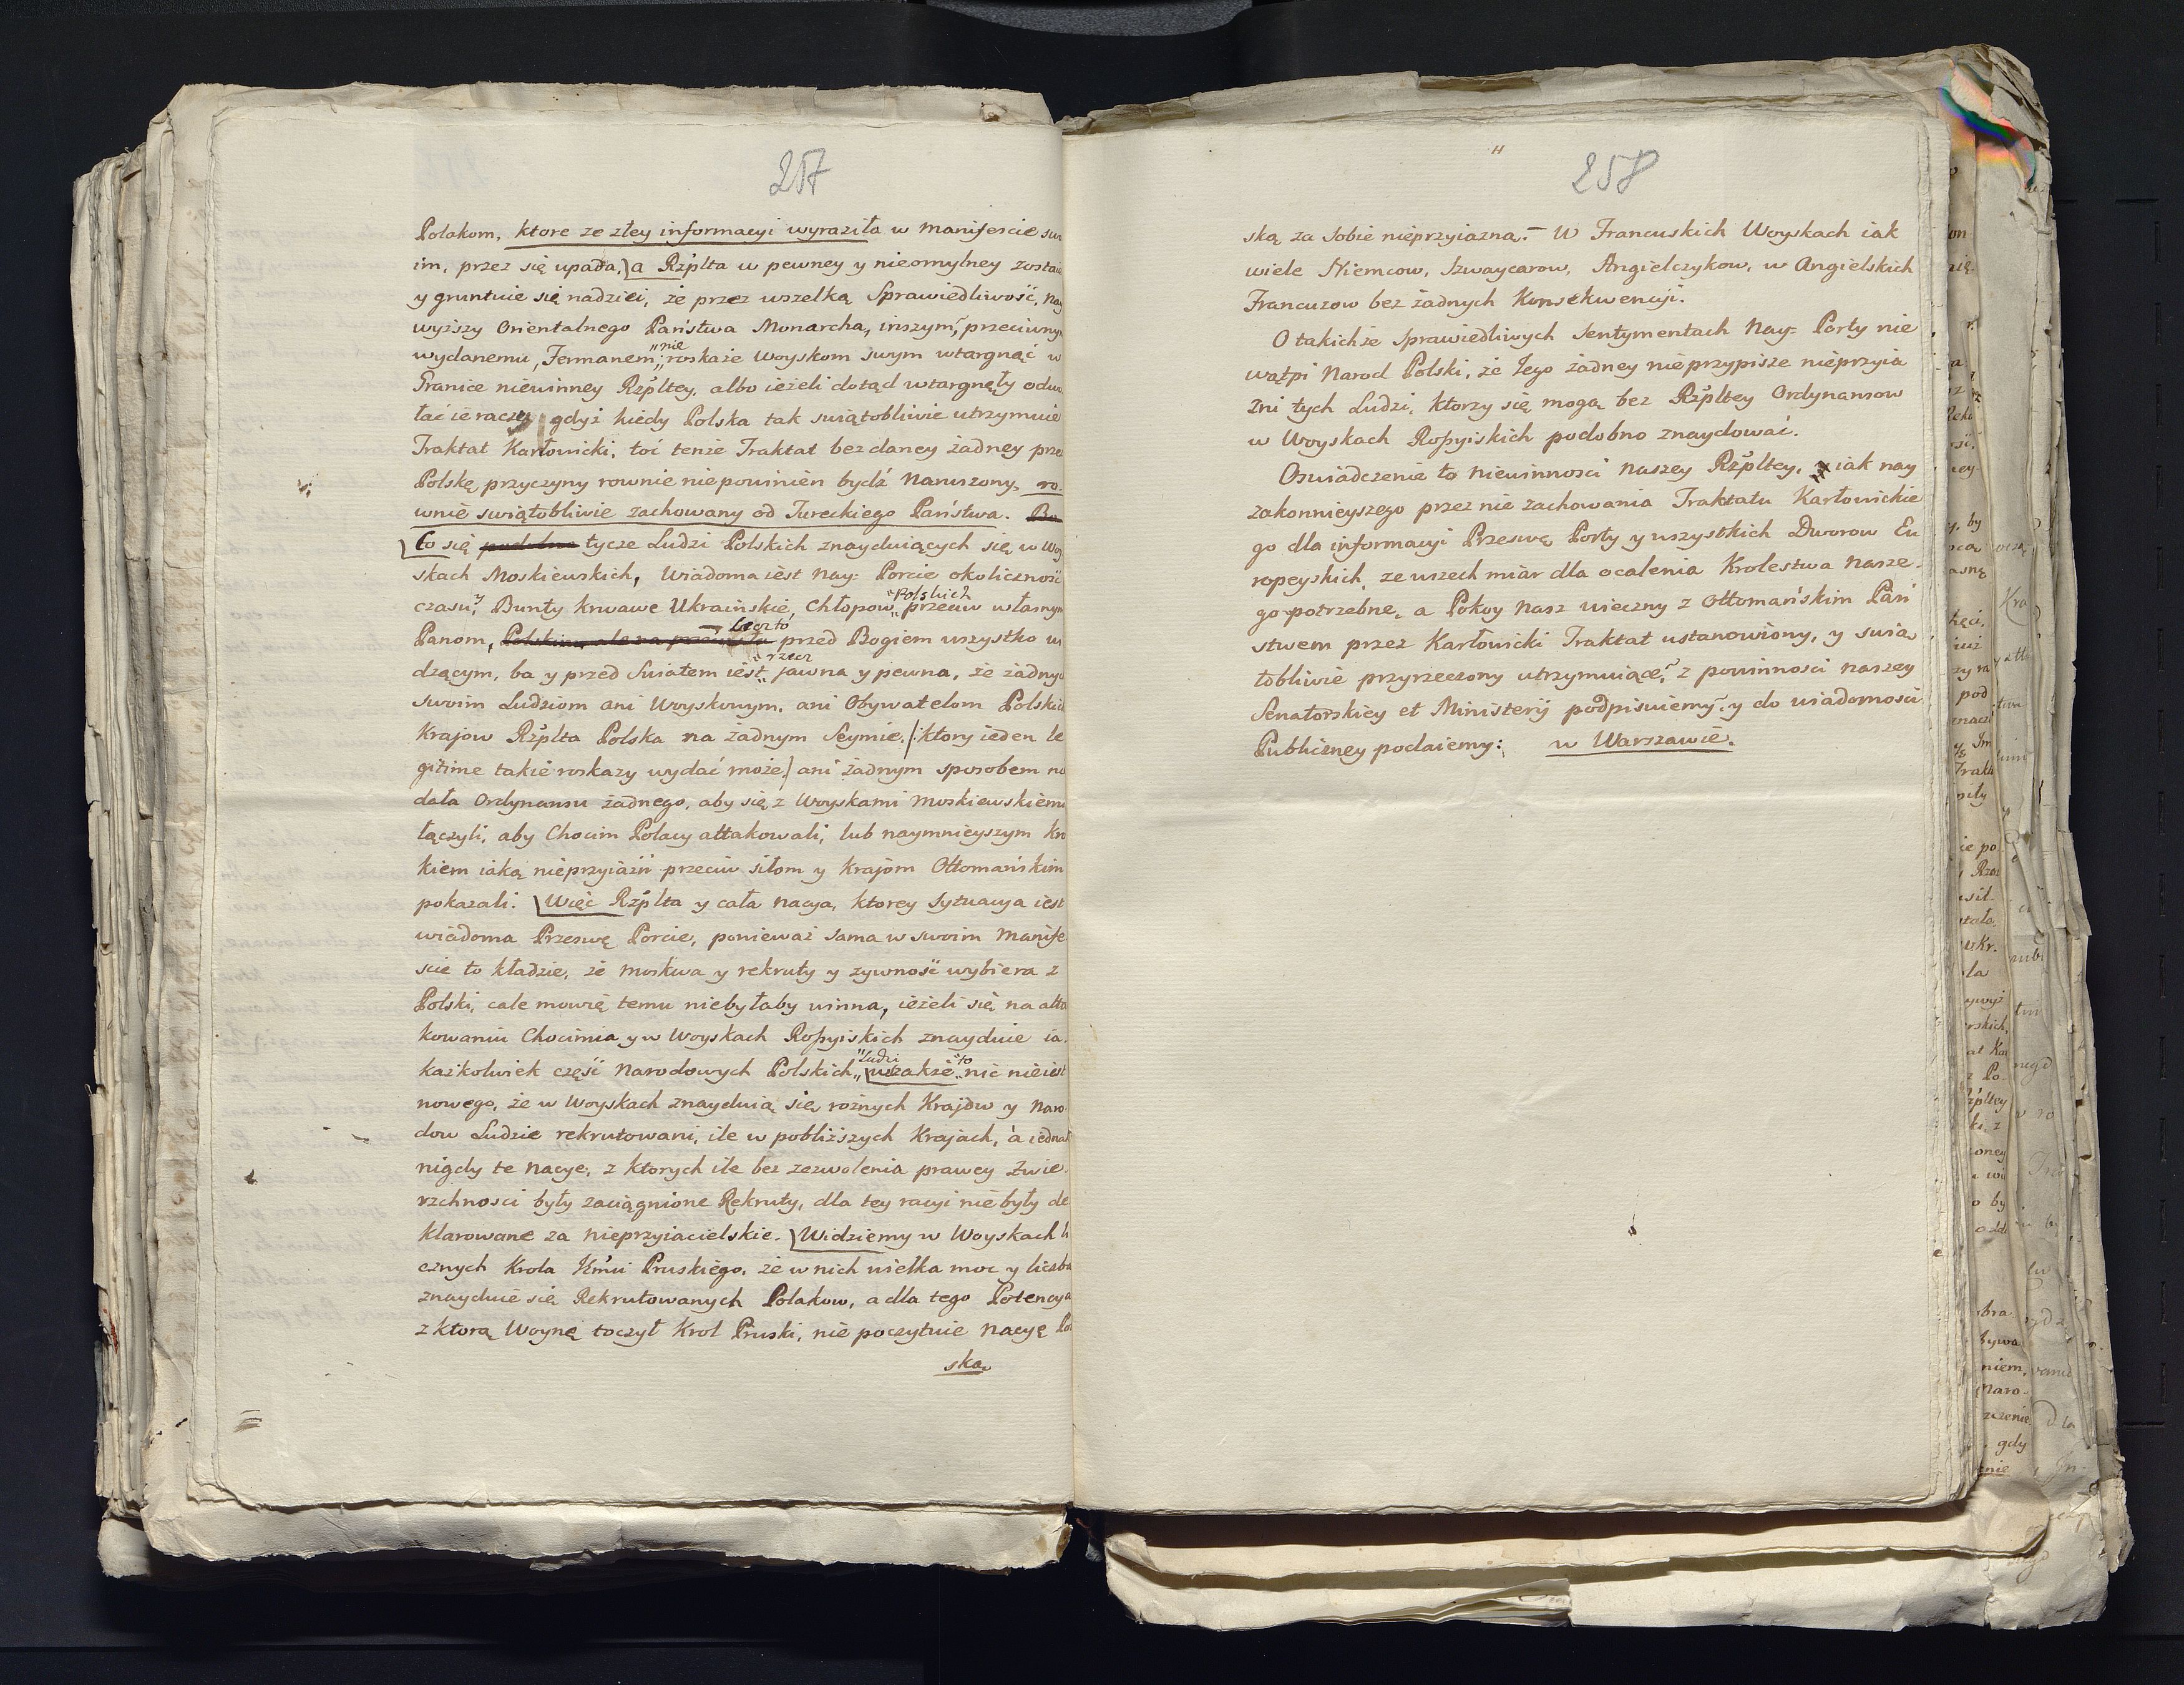 257
Polakom, ktore ze złey informacyi wyraziła w Manifescie swo
im, przez się upada, a Rzplta w pewney y nieomylney zostaie
y gruntuie się nadziei, że przez wszelką Sprawiedliwość, nay
wyższy Orientalnego Państwa Monarcha, inszym, przeciwnym
wydanemu, Fermanem, nie roskaże Woyskom swym wtargnąć w
Granice niewinney Rzpltey, albo ieżeli dotąd wtargnęły odwo
łać ie raczy gdyż kiedy Polska tak swiątobliwie utrzymuie
Traktat Karłowicki, toć tenże Traktat bez daney żadney przez
Polskę przyczyny rownie niepowinien bydź naruszony, ro-
wnie swiątobliwie zachowany od Tureckiego Państwa. Bo
Co się podobno tycze Ludzi Polskich znayduiących się w Woy
skach Moskiewskich, wiadoma iest Nay: Porcie okoliczność
czasu, Bunty krwawe Ukraińskie, Chłopow Polskich przeciw własnym
Panom, Lecz to przed Bogiem wszystko wi
dzącym, ba y przed Swiatem iest rzecz jawna y pewna, że żadnym
swoim Ludziom ani Woyskowym, ani Obywatelom Polskich
Krajow Rzplta Polska na żadnym Seymie, /:ktory ieden le
gitime takie roskazy wydać może/ ani żadnym sposobem nie
dała Ordynansu żadnego, aby się z Woyskami Moskiewskiemi
łączyli, aby Chocim Polacy attakowali, lub naymnieyszym kro
kiem iaką nieprzyiaźń przeciw siłom y krajom Ottomańskim
pokazali. Więc Rzplta y cała nacya, ktorey sytuacya iest
wiadoma Przeswę Porcie, ponieważ sama w swoim Manife
scie to kładzie, że Moskwa y rekruty y zywność wybiera z
Polski, cale mowię temu niebyłaby winna, ieżeli się na atta
kowaniu Chocimia y w Woyskach Rossyiskich znayduie ia-
każkolwiek część Narodowych Polskich Ludzi, wszakże to nic nieiest
nowego, że w Woyskach znayduią się rożnych Krajow y Naro-
dow Ludzie rekrutowani, ile w pobliższych Krajach, a iednak
nigdy te nacye, z ktorych ile bez zezwolenia prawey Zwie-
rzchnosci były zaciągnione Rekruty, dla tey racyi nie były de
klarowane za nieprzyiacielskie. Widziemy w Woyskach li
cznych Krola Jćmi Pruskiego, że w nich wielka moc y liczba
znayduie się Rekrutowanych Polakow, a dla tego Potencya
z ktorą Woynę toczył Krol Pruski, nie poczytuie Nacyę Pol
ską
258
ską za sobie nieprzyiazną. – W Francuskich Woyskach iak
wiele Niemcow, Szwaycarow, Angielczykow, w Angielskich
Francuzow bez żadnych Konsekwencyi.
O takichże Sprawiedliwych Sentymentach Nay: Porty nie
wątpi Narod Polski, że Jego żadney nieprzypisze nieprzyia
źni tych Ludzi, ktorzy się mogą bez Rzpltey Ordynansow
w Woyskach Rossyiskich podobno znaydować.
Oswiadczenie to niewinnosci naszey Rzpltey, y iak nay
zakonnieyszego przez nie zachowania Traktatu Karłowickie
go dla informacyi Przeswę Porty y wszystkich Dworow Eu
ropeyskich, ze wszech miar dla ocalenia Krolestwa Nasze-
go potrzebne, a Pokoy Nasz wieczny z Ottomańskim Pań
stwem przez Karłowicki Traktat ustanowiony, y swia
tobliwie przyrzeczony utrzymuiące, z powinnosci naszey
Senatorskiey et Ministerij podpisuiemy, y do wiadomosci
Publiczney podaiemy: w Warszawie.